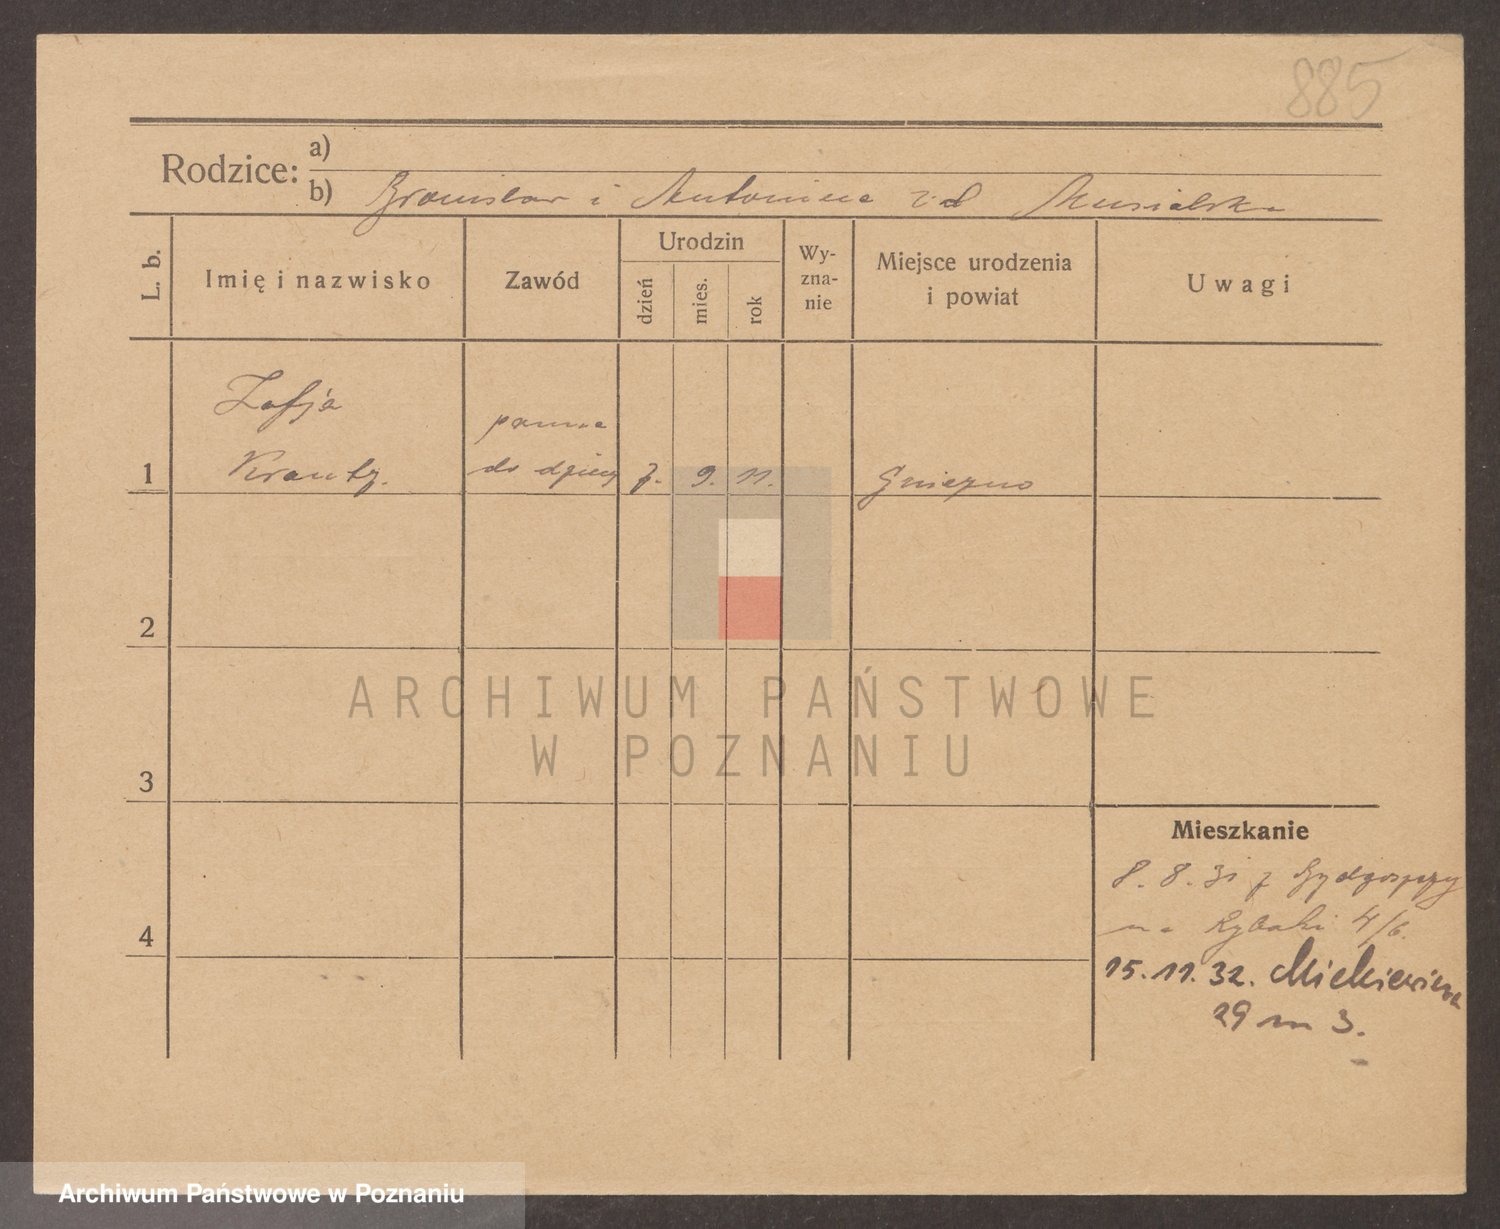 885
Rodzice: a)
b) Bronisław i Antonina z d Musielska
L. b.
Imię i nazwisko
Zawód
Urodzin
dzień
mies.
rok
Wy-
zna-
nie
Miejsce urodzenia
i powiat
Uwagi
Zofja
panna
1
Krantz.
do dzieci
7. 9. 11.
Gniezno
2
ARCHIWUM PAŃSTWOWE
W POZNANIU
3
Mieszkanie
8. 8. 31 z Bydgoszczy
na Rybaki 4/6.
4
15. 11. 32. Mickiewicza
29 m 3.
Archiwum Państwowe w Poznaniu